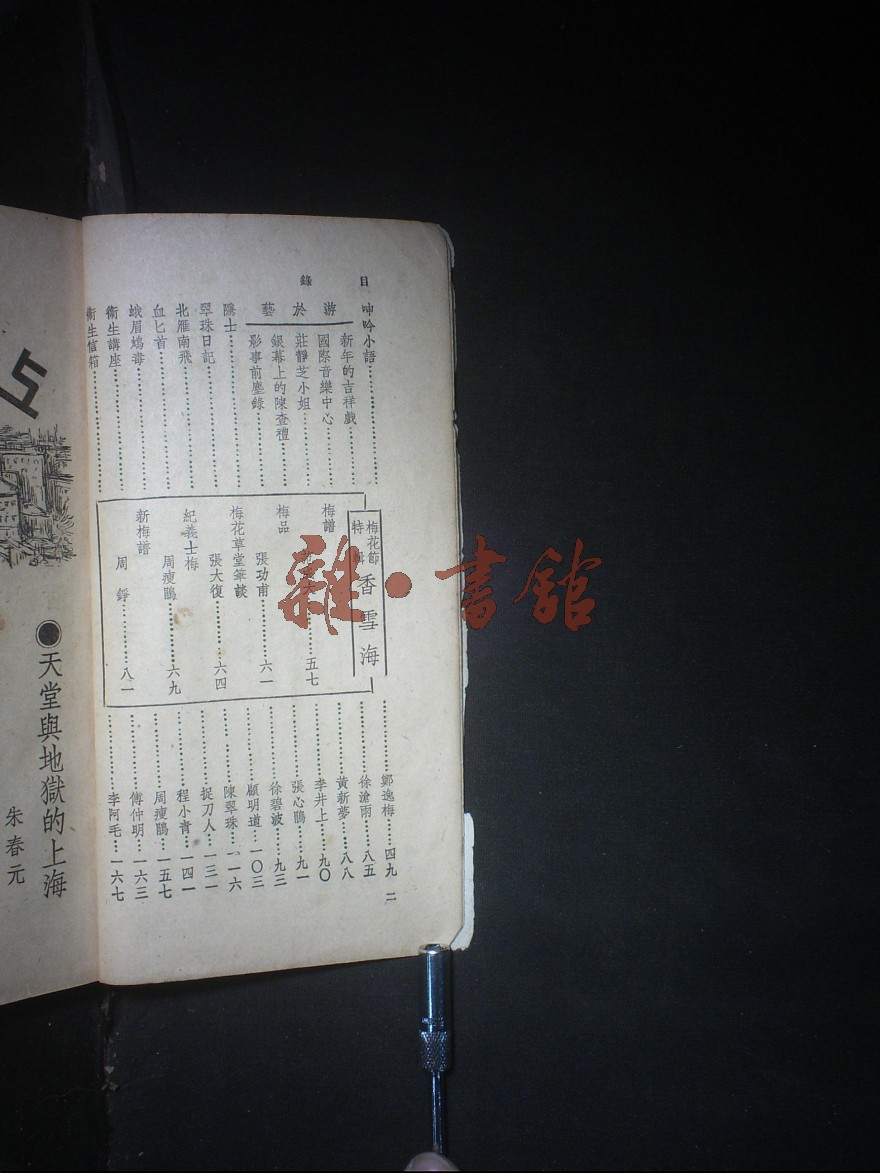 目錄
呻吟小語……鄭逸梅…四九
游於藝
新年的吉祥戲……徐滄雨…八五
國際音樂中心……黃新夢…八八
莊靜芝小姐……李井上…九〇
銀幕上的陳查禮……張心鵑…九一
影事前塵錄……徐碧波…九三
隱士……顧明道…一〇三
翠珠日記……陳翠珠…一一六
北雁南飛……捉刀人…一三一
血匕首……程小青…一四一
蛾眉鴆毒……周瘦鵑…一五七
衛生講座……傅仲明…一六三
衛生信箱……李阿毛…一六七
梅花節特輯
香雪海
梅譜
五七
梅品
張功甫……六一
梅花草堂筆談
張大復……六四
紀義士梅
周瘦鵑……六九
新梅譜
周錚……八一
二
●天堂與地獄的上海
朱春元
雜·書館